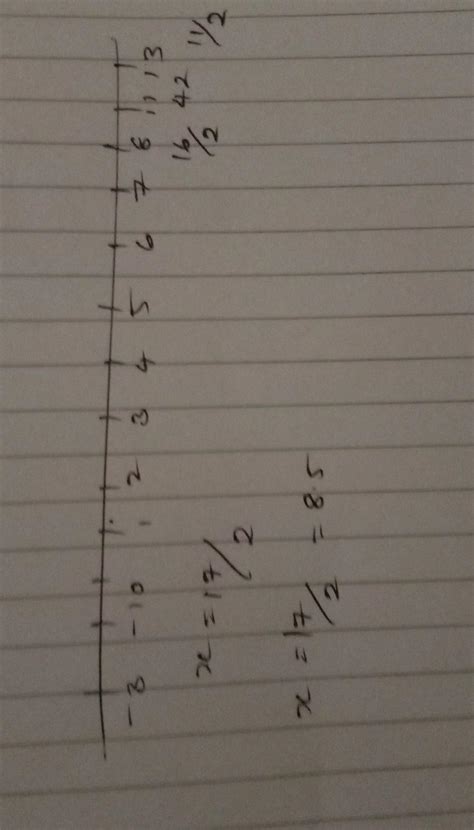 -3 -1 0 1 2 3 4 5 6 7 8 11 13
16/2 42 11/2
x = 17/2
x = 17/2 = 8.5